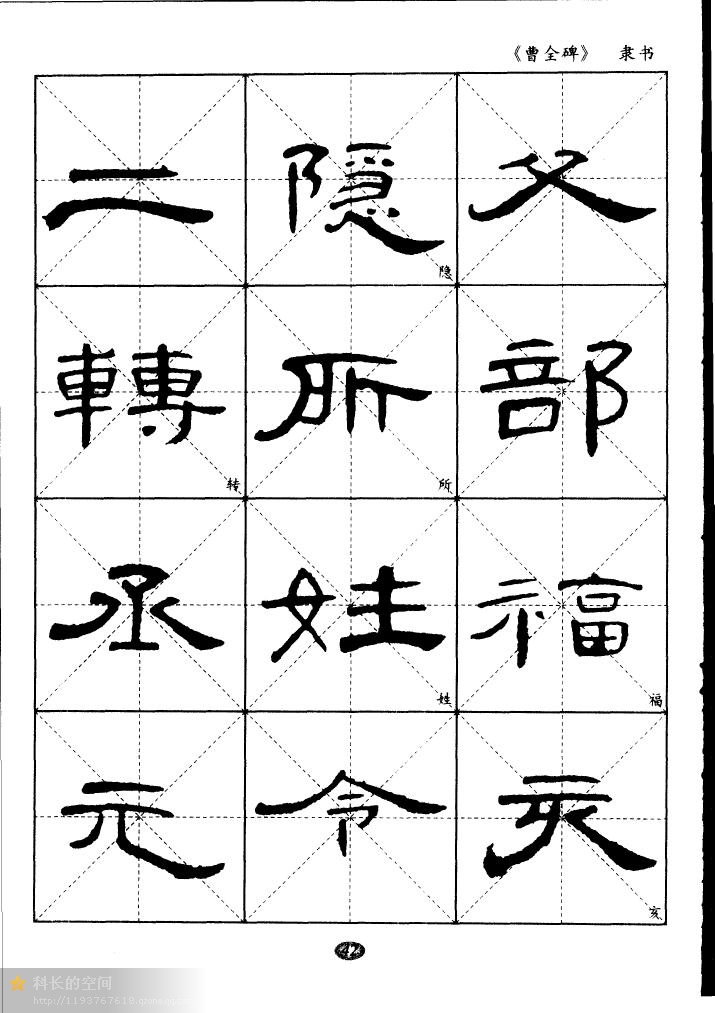 《曹全碑》 隶书
二 隐 父
隐
轉 所 部
转 所
丞 姓 福
姓 福
元 令 亥
亥
42
科长的空间
http://1193767618.qzone.qq.com